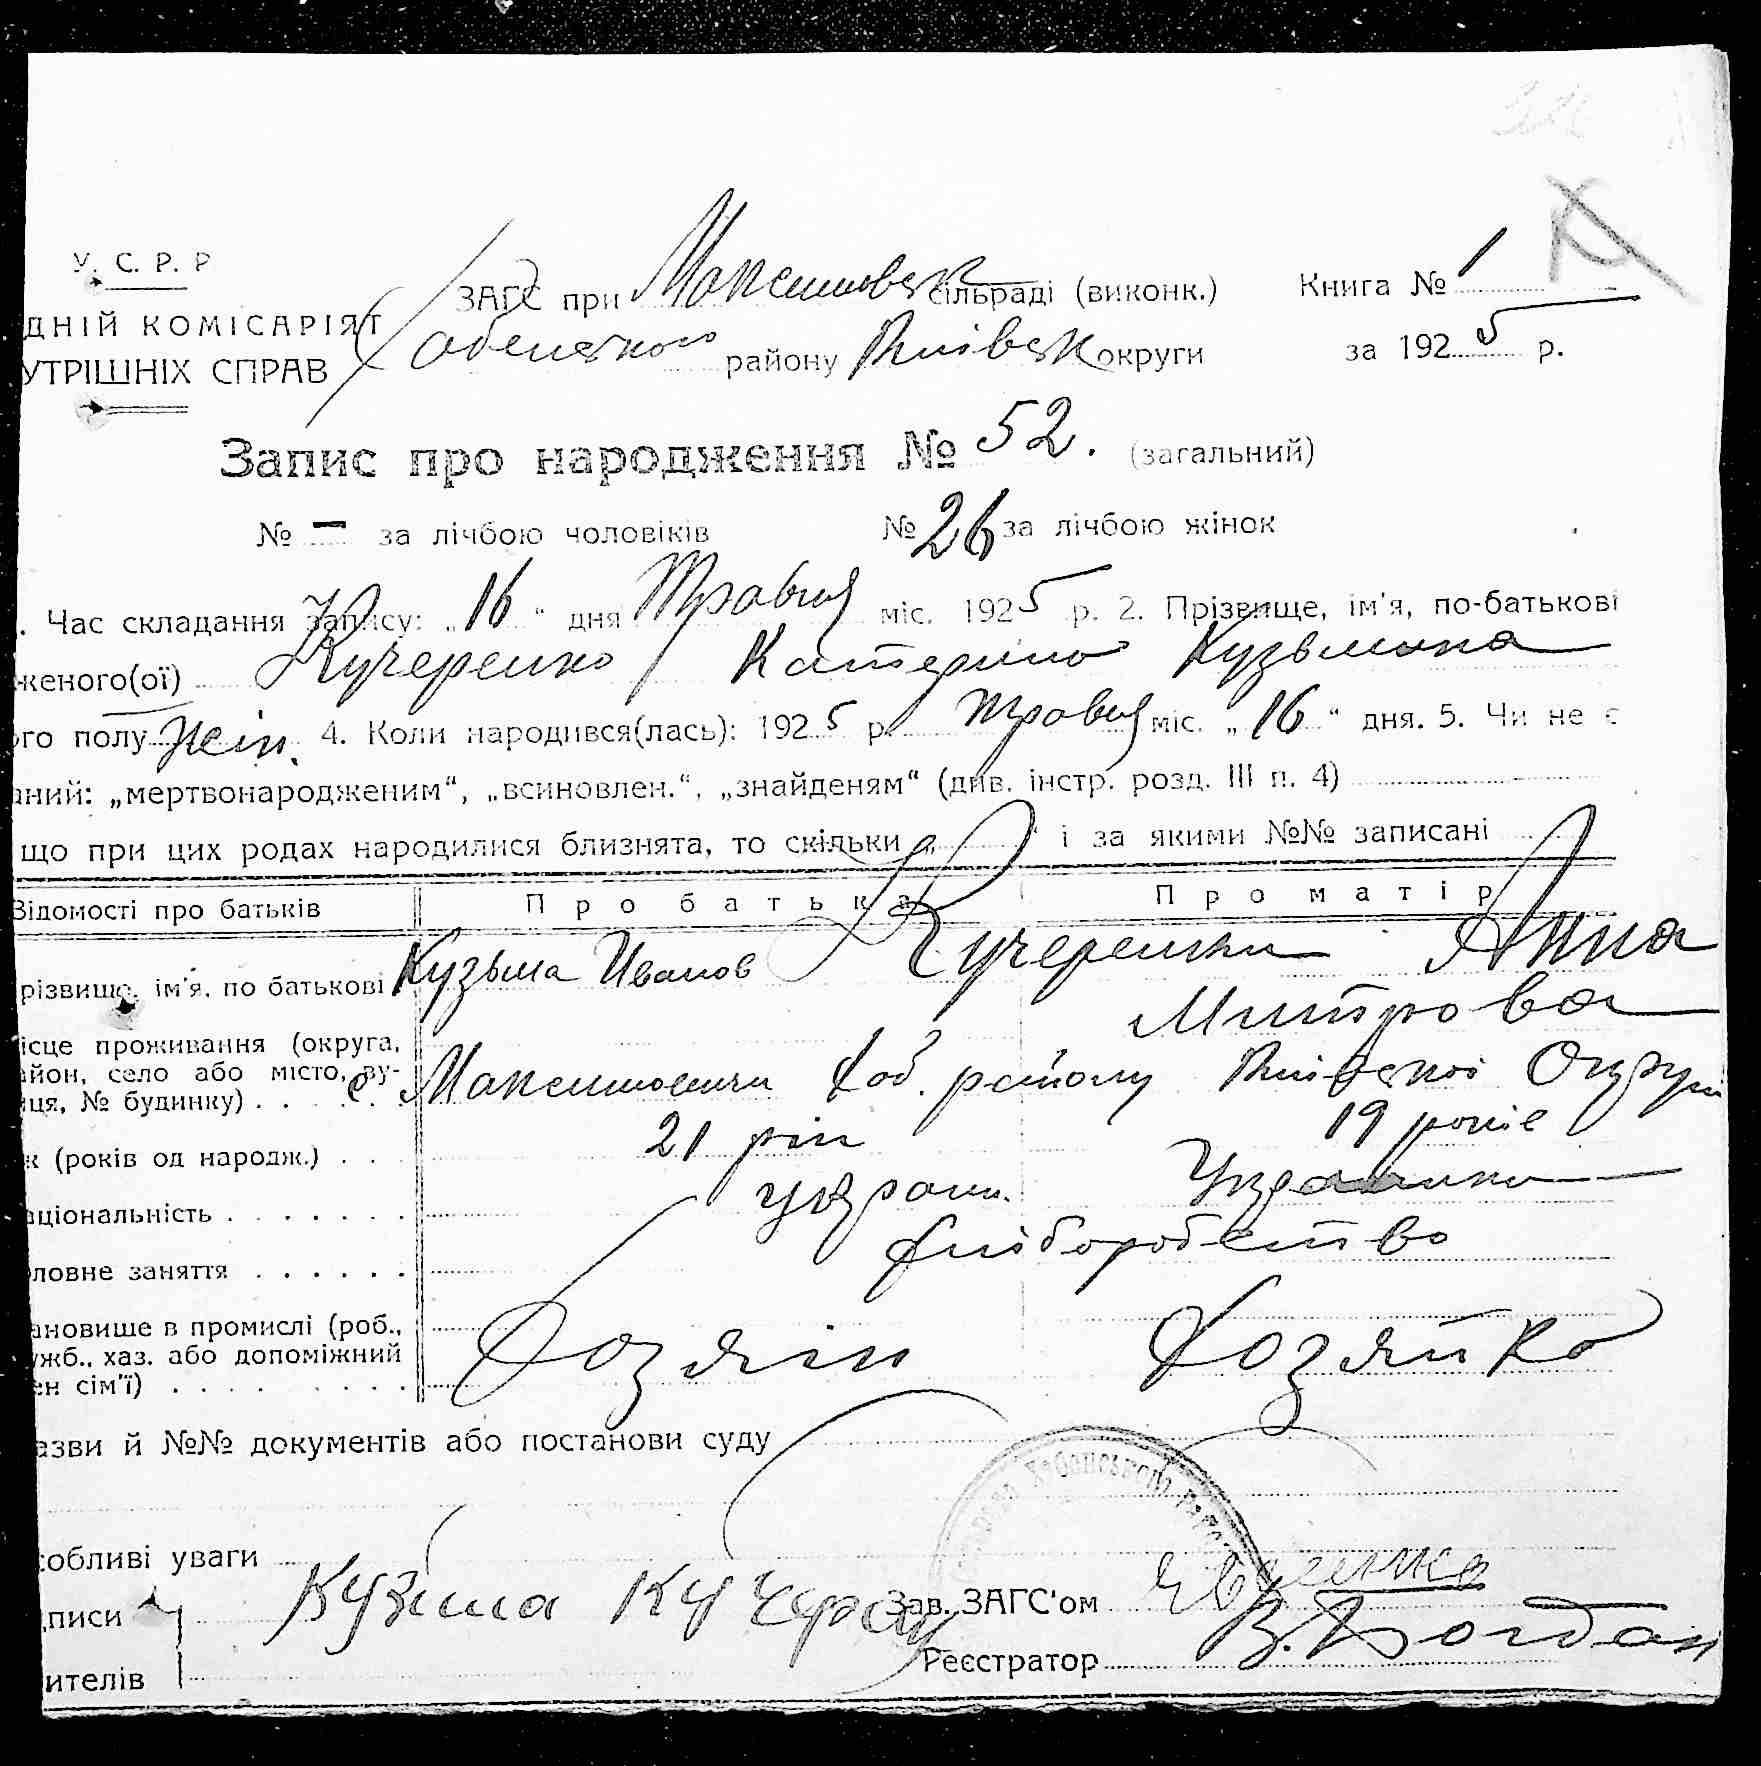 У. С. Р. Р
ЗАГС при Максимовск сільраді (виконк.) Книга № 1
ДНІЙ КОМІСАРІЯТ
УТРІШНІХ СПРАВ Хабенського району Київськ округи за 1925 р.
Запис про народження № 52. (загальний)
№ — за лічбою чоловіків № 26 за лічбою жінок
. Час складання запису: „16“ дня Травня міс. 1925 р. 2. Прізвище, ім'я, по-батькові
женого(ої) Кучеренко Катерина Кузьмина
ого полу жін. 4. Коли народився(лась): 1925 р. травня міс. „16“ дня. 5. Чи не є
аний: „мертвонародженим“, „всиновлен.“, „знайденям“ (див. інстр. розд. III п. 4)
що при цих родах народилися близнята, то скільки „ “ і за якими №№ записані
Відомості про батьків Про батька Про матір
різвище, ім'я, по батькові Кузьма Иванов Кучеренки Анна
Митрова
ісце проживання (округа,
айон, село або місто, ву-
ця, № будинку) . . . . с Максимовичи Хаб. району Київської Округи
к (років од народж.) . . . 21 рік 19 років
аціональність . . . . . . . україн. Українка
ловне заняття . . . . . . хліборобство
ановише в промислі (роб.,
ужб., хаз. або допоміжний
ен сім'ї) . . . . . . . . Хозяін Хозяйка
азви й №№ документів або постанови суду
собливі уваги
писи Кузьма Кучерен Зав. ЗАГС'ом
Реєстратор В. Богдан
ителів